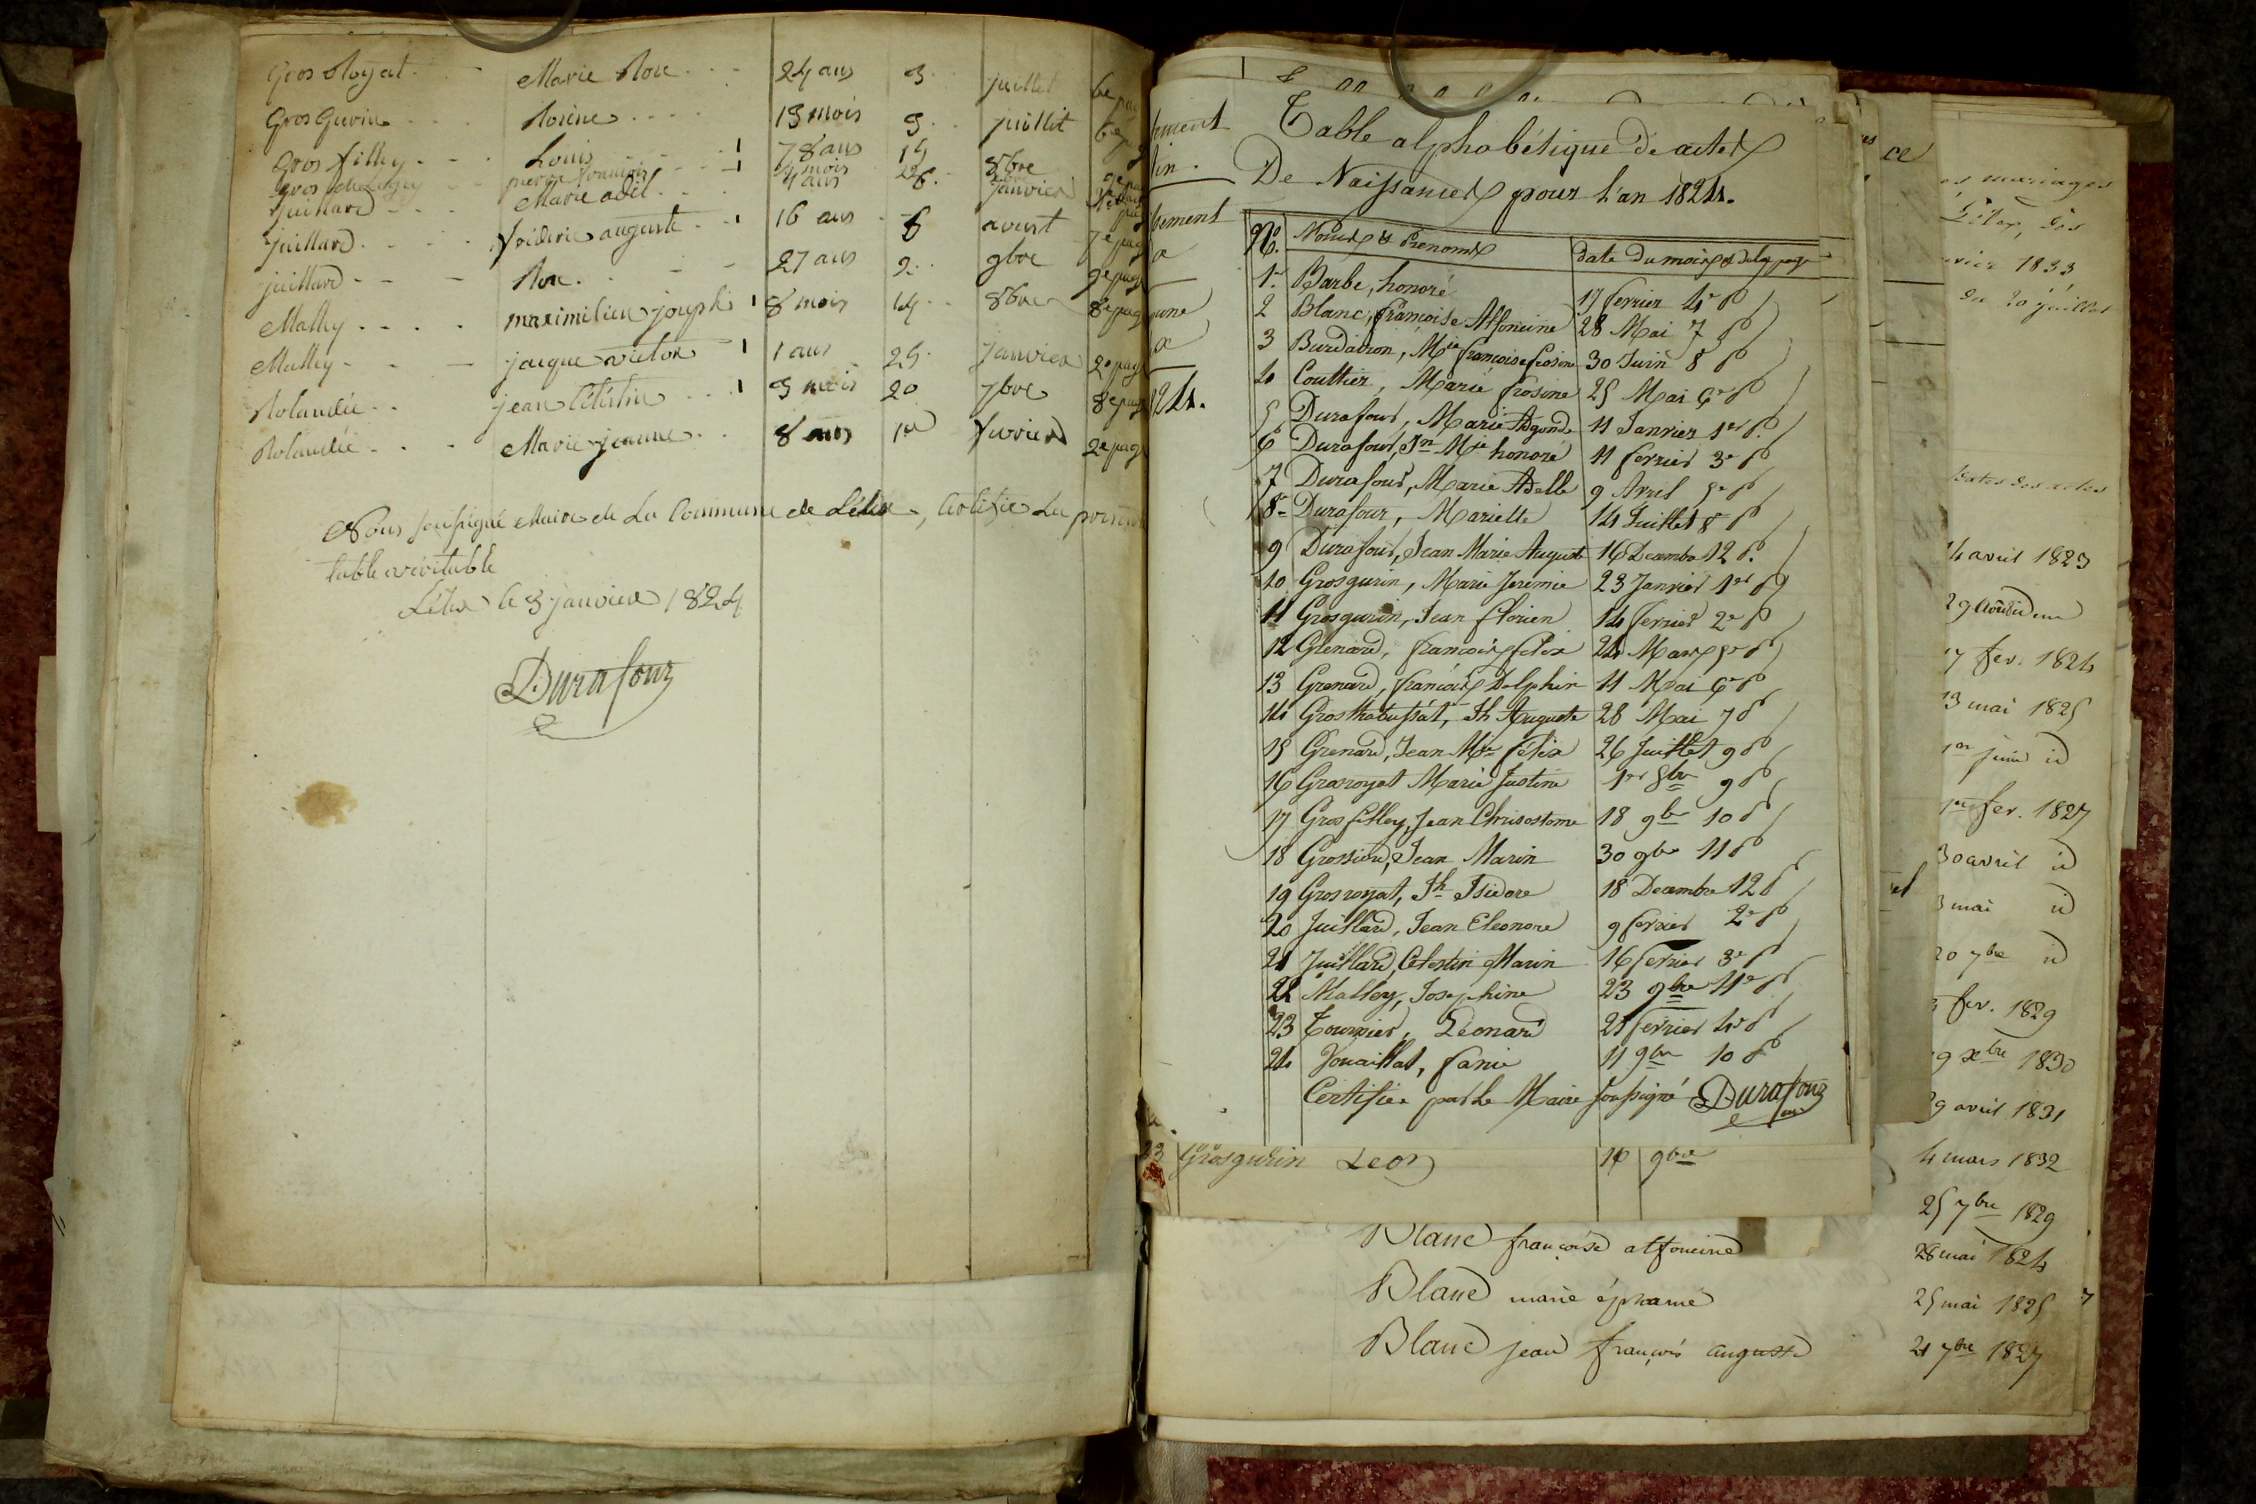 Gros Royat Marie Rose 24 ans 3 juillet 6e pag
Gros Gurin Rosine 13 mois 3 juillet 6e pag
Gros filley Louis 78 ans 15 8bre 9e pag
pierre françois mois 22
Juillard Marie adèl 4 ans 6 janvier
juillard fréderic auguste 16 ans 8 aoust 7e pag
juillard Rose 27 ans 2 9bre 9e pag
Malley maximilien joseph 8 mois 14 8bre 8e pag
Malley jacque victor 1 ans 25 Janvier 2e pag
Rolandée jean Célestin 3 mois 20 7bre 8e pag
Rolandée Marie jeanne 8 ans 1er fuvrier 2e page
Nous soussigné Maire de La Commune de Lélex, Certifie La
table véritable
Lélex le 3 janvier 1824
Durafour
Table alphabétique de actes
De Naissances pour l'an 1824.
No. Noms & Prenoms date du mois & de la page
1er Barbe, honoré 17 fevrier 4e
2 Blanc, françoise Alfonsine 28 Mai 7
3 Burdairon, Mie françoise frosine 30 Juin 8
4 Couttier, Marie frosine 25 Mai 6e
5 Durafour, Marie Adgonde 11 Janvier 1er
6 Durafour, Jn Mie honoré 11 fevrier 3e
7 Durafour, Marie Adelle 9 Avril 5e
8 Durafour, Mariette 14 Juillet 8
9 Durafour, Jean Marie Auguste 16 Decembre 12
10 Grosgurin, Marie Jeremie 23 Janvier 1er
11 Grosgurin, Jean florien 14 fevrier 2e
12 Grenard, françois félix 24 Mars 5e
13 Grenard, françois Delphin 11 Mai 6e
14 Jh Auguste 28 Mai 7
15 Grenard, Jean Mie félix 26 Juillet 9
16 Grosroyat Marie Justine 1er 8bre 9
17 Gros filley, Jean Chrisostome 18 9bre 10
18 Jean Marin 30 9bre 11
19 Grosroyat, Jh Isidore 18 Decembre 12
20 Juillard, Jean Eleonore 9 fevrier 2e
21 Juillard, Celestin Marin 16 fevrier 3e
22 Malley, Josephine 23 9bre 11e
23 Tournier, Léonard 25 fevrier 4e
24 Jouaillat, fanie 11 9bre 10
Certifiée par Le Maire soussigné Durafour
23 Grosgurin Leon 16 9bre
Blanc françoise alfonsine 28 mai 1824
Blanc marie éphanie 25 mai 1825
Blanc jean françois auguste 21 7bre 1827
es mariages
Lélex, des
vier 1833
du 20 juillet
dates des actes
14 avril 1823
17 fev. 1824
13 mai 1825
1er juin id
1er fev. 1827
30 avril id
3 mai id
20 7bre id
fev. 1829
9 xbre 1830
9 avril 1831
4 mars 1832
25 7bre 1829